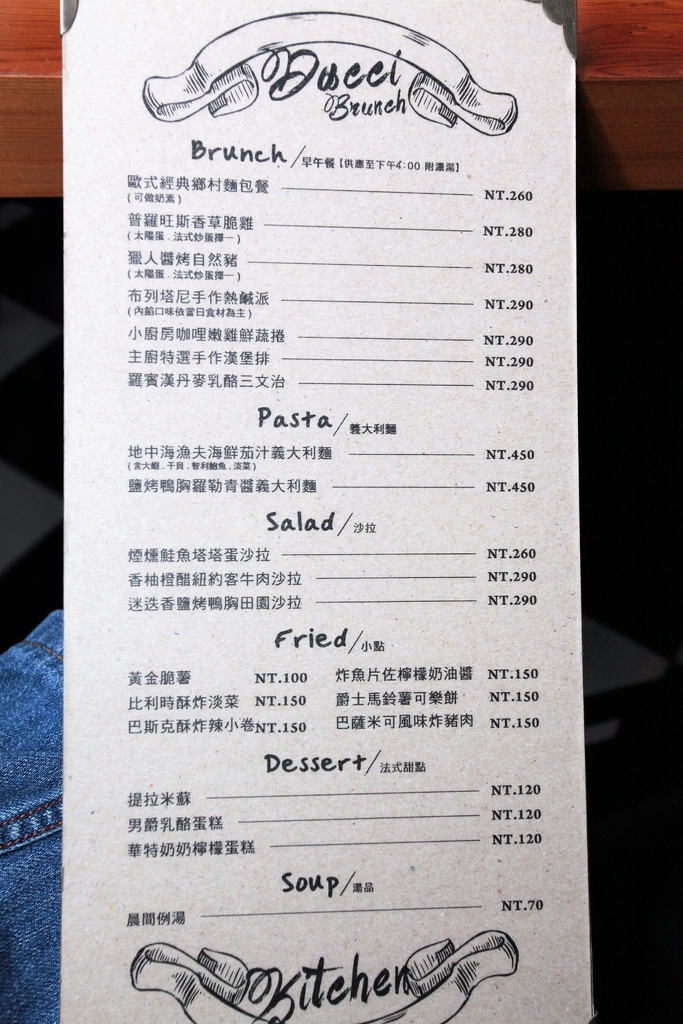 Ducci
Brunch
Brunch/早午餐【供應至下午4:00 附濃湯】
歐式經典鄉村麵包餐 NT.260
(可做奶素)
普羅旺斯香草脆雞 NT.280
(太陽蛋．法式炒蛋擇一)
獵人醬烤自然豬 NT.280
(太陽蛋．法式炒蛋擇一)
布列塔尼手作熱鹹派 NT.290
(內餡口味依當日食材為主)
小廚房咖哩嫩雞鮮蔬捲 NT.290
主廚特選手作漢堡排 NT.290
羅賓漢丹麥乳酪三文治 NT.290
Pasta/義大利麵
地中海漁夫海鮮茄汁義大利麵 NT.450
(含大蝦．干貝．智利鮑魚．淡菜)
鹽烤鴨胸羅勒青醬義大利麵 NT.450
Salad/沙拉
煙燻鮭魚塔塔蛋沙拉 NT.260
香柚橙醋紐約客牛肉沙拉 NT.290
迷迭香鹽烤鴨胸田園沙拉 NT.290
Fried/小點
黃金脆薯 NT.100 炸魚片佐檸檬奶油醬 NT.150
比利時酥炸淡菜 NT.150 爵士馬鈴薯可樂餅 NT.150
巴斯克酥炸辣小卷 NT.150 巴薩米可風味炸豬肉 NT.150
Dessert/法式甜點
提拉米蘇 NT.120
男爵乳酪蛋糕 NT.120
華特奶奶檸檬蛋糕 NT.120
Soup/湯品
晨間例湯 NT.70
Kitchen